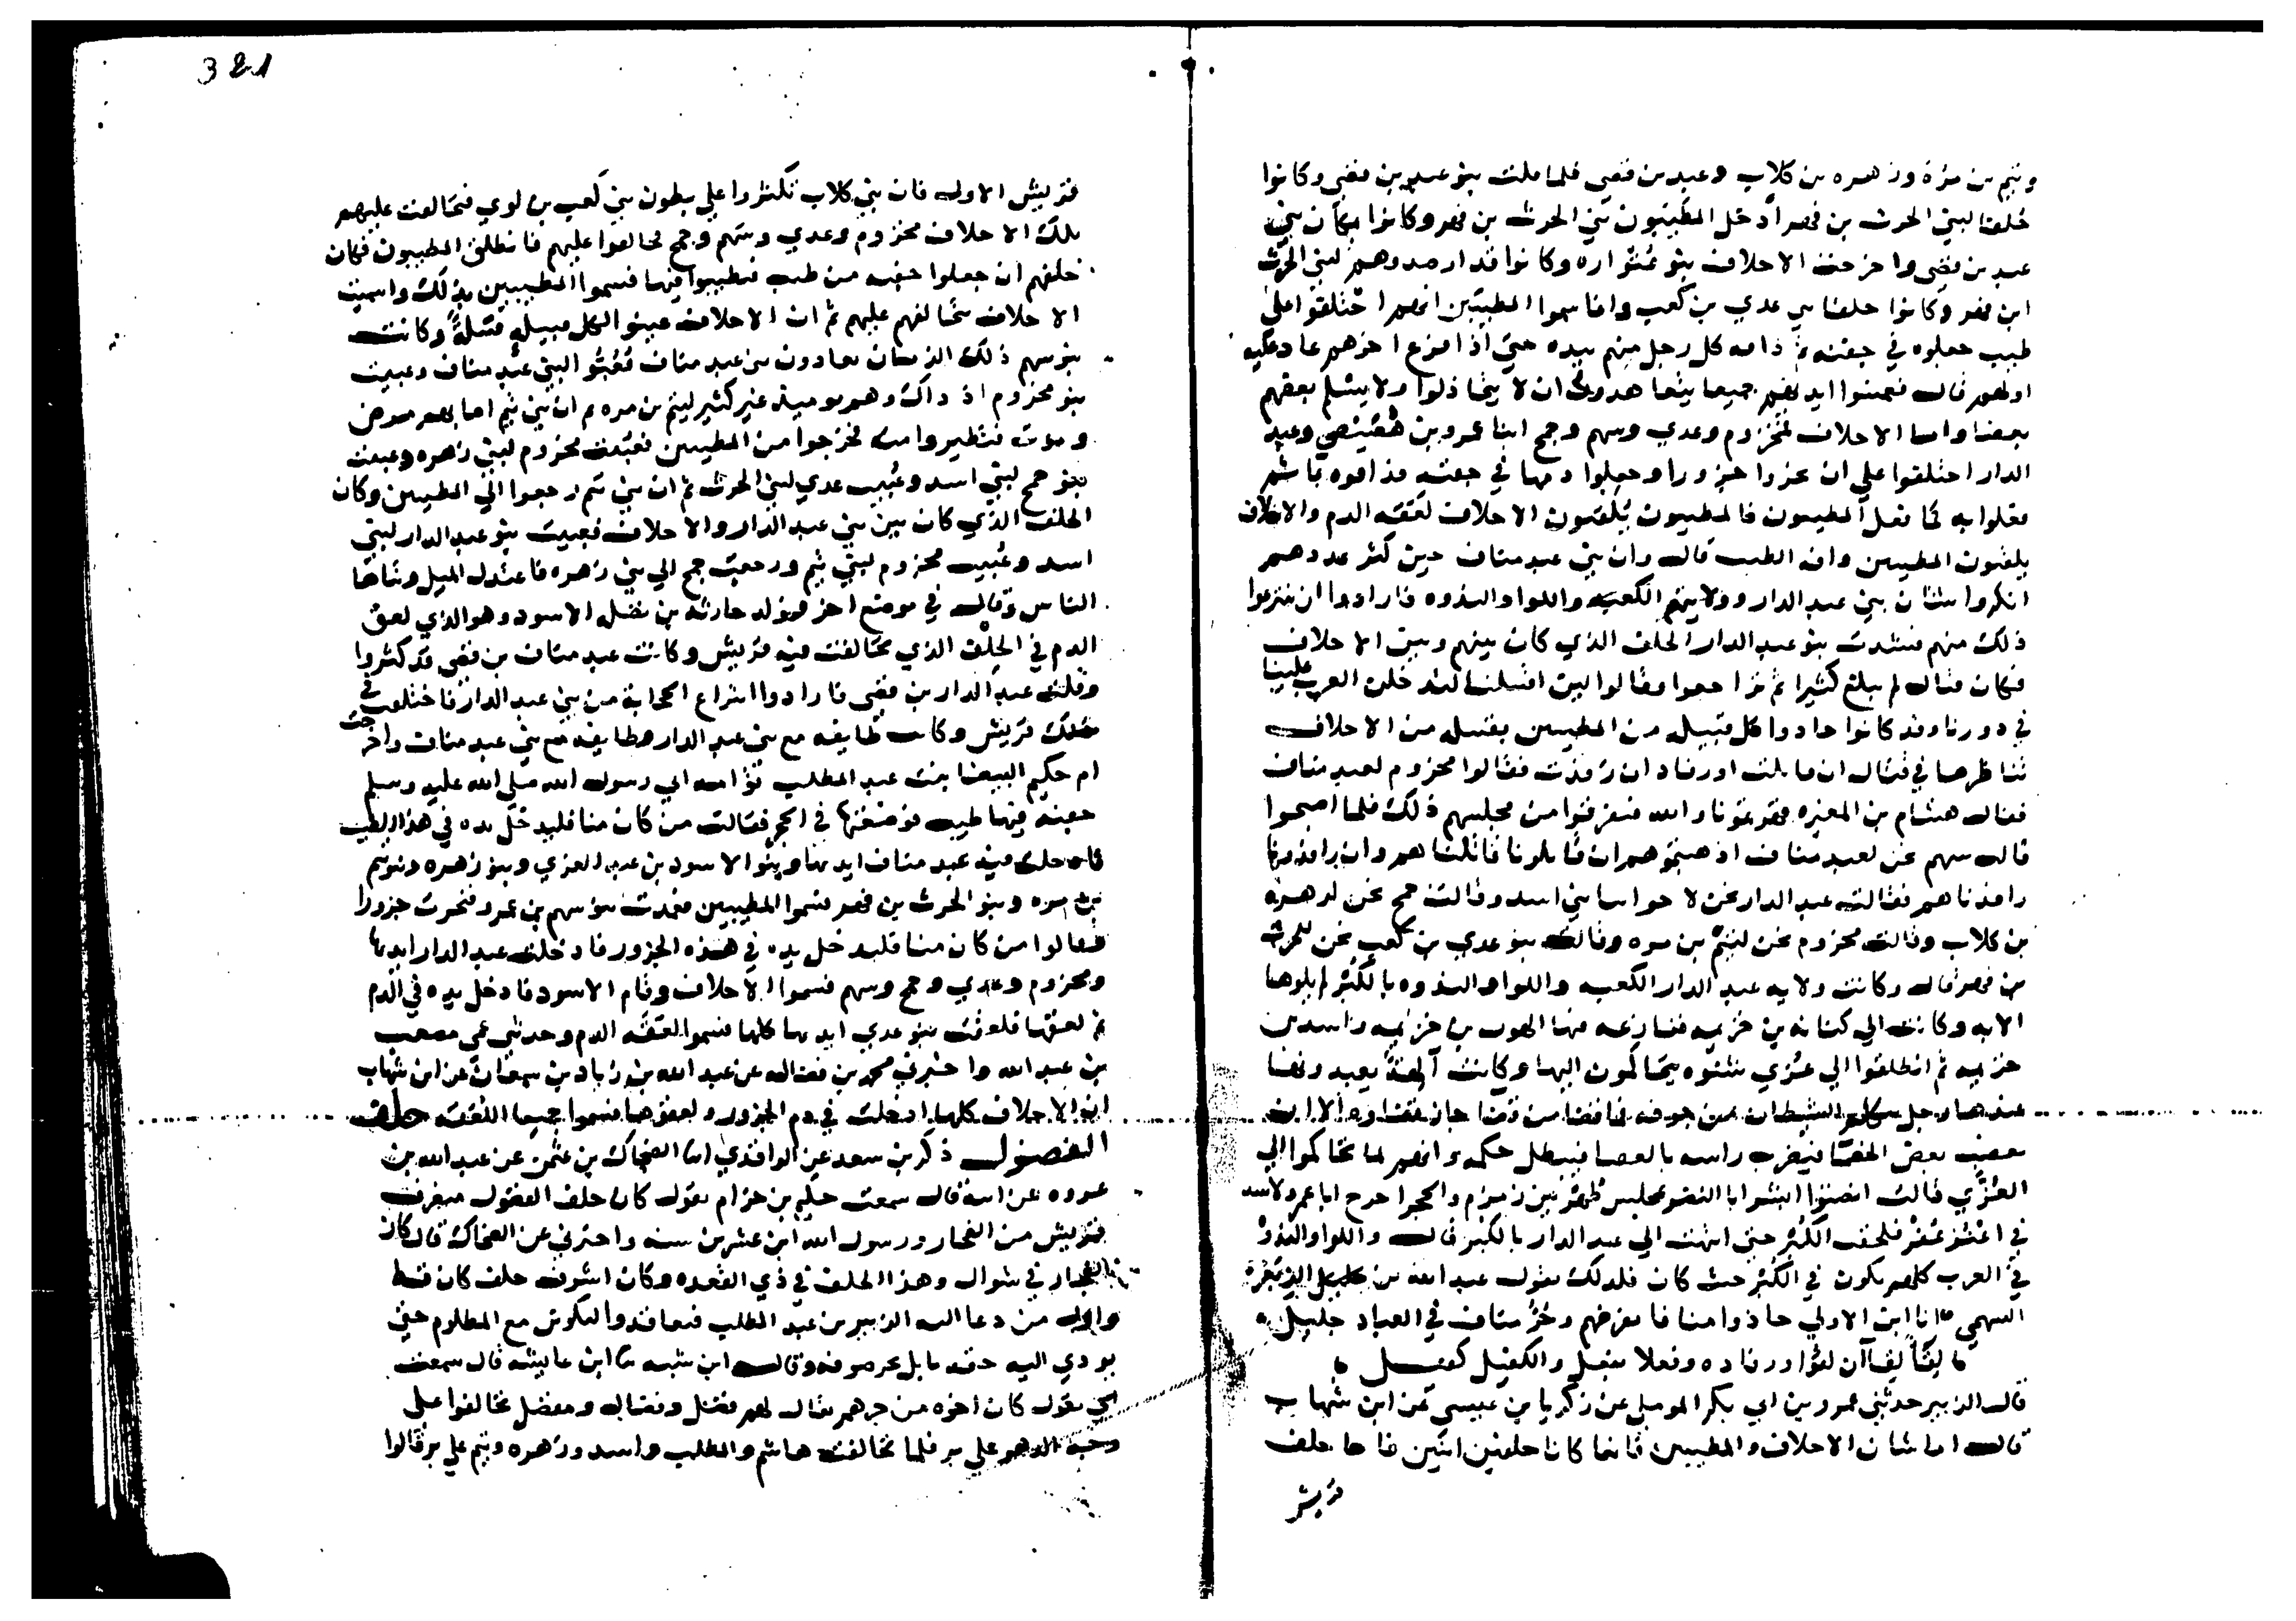 وتيم بن مرة وزهره بن كلاب وعبد بن قصي فلما ملت بنو عبد بن قصي وكانوا
حلفا لبني الحرث بن فهر ادخل المطيبون بني الحرث بن فهر وكانوا مكان بني
عبد بن قصي واخرجت الاحلاف بنو عتواره وكانوا قد ارصدوهم لبني الحرث
ابن فهر وكانوا حلفا بني عدي بن كعب وانما سموا المطيبين انهم اختلقوا على
طيب جعلوه في جفنه ثم ذامه كل رجل منهم بيده حتى اذا افرع اخرهم عاد عليه
اولهم قال فغمسوا ايديهم جميعا ثم تعاهدوا على ان لا يتخاذلوا ولا يسلم بعضهم
بعضا واما الاحلاف فمخزوم وعدي وسهم وجمح ابنا عمرو بن هصيص وعبد
الدار احتلفوا على ان نحروا جزورا وجعلوا دمها في جفنه فذاقوه باسم
فعلوا به كما فعل المطيبون فالمطيبون يلقبون الاحلاف لعقه الدم والاحلاف
يلقبون المطيبين الطيب قال وان بني عبد مناف حين كثر عددهم
انكروا شان بني عبد الدار وولايتهم الكعبه واللوا والندوه فارادوا ان ينتزعوا
ذلك منهم فنشدت بنو عبد الدار الحلف الذي كان بينهم وبين الاحلاف
فكان قتال لم يبلغ كثيرا ثم تراجعوا وقالوا لين اقتتلنا لتدخلن العرب علينا
في دورنا وقد كانوا حادوا كل قبيله من المطيبين بقبيله من الاحلاف
تناظرها في قتال ان قابلت او رفاد ان رفدت فقالوا مخزوم لعبد مناف
فقال هشام بن المغيره والله فتفرقوا من مجلسهم ذلك فلما اصبحوا
قالت سهم نحن لعبد مناف اذهبتموهم ان قاتلونا قاتلناهم وان رافدونا
رافدناهم فقالت عبد الدار نحن لاخواننا بني اسد وقالت جمح نحن لزهره
بن كلاب وقالت مخزوم نحن لتيم بن مره وقالت بنو عدي بن كعب نحن للحرث
بن فهر قال وكانت ولايه عبد الدار الكعبه واللوا والندوه بالكبر لم يلوها
الا به وكانت الي كنانه بن خزيمه فنازعه فيها الهون بن خزيمه واسد بن
خزيمه ثم انطلقوا الي عزي شنوه يتحاكمون اليها وكانت آلهة يعبد وثنا
عندها رجل يكلم الشيطان من جوفه فاقضا من قضا جاز قضاوه الا ان
يغضب بعض الخصما فيضرب راسه بالعصا فيبطل حكمه وانهم لما تحاكموا الي
العزي قالت انصتوا ابشروا بالنضر بمجلس ظهر بين زمزم والحجر اخرج ابا عمر ولاسد
في اعفر عفر فلحقت الكبر حتى انتهت الي عبد الدار بالكبر قال واللوا والندوه
في العرب كلهم يكون في الكبر حيث كان فلذلك يقول عبد الله بن الزبعرى
السهمي انا ابن الاولي حاذوا منافا بعزهم وحر مناف في العباد جليل
لقا لقاآن لقوا ورفاده وفعلا بفعل والكفيل كفيل
قال الزبير حدثني عمر بن ابي بكر الموملي عن زكريا بن عيسى عن ابن شهاب
قال اما شان الاحلاف والمطيبين فانما كانا حلفين اثنين فاما حلف
قريش
321
قريش الاول فان بني كلاب تكثروا على بطون بني كعب بن لوي فتحالفت عليهم
بذلك الاحلاف مخزوم وعدي وسهم وجمح تحالفوا عليهم فانطلق المطيبون فكان
حلفهم ان جعلوا جفنه من طيب فتطيبوا فيها فسموا المطيبين بذلك واسميت
الاحلاف بتحالفهم عليهم ثم ان الاحلاف عبئوا لكل قبيله قبيلة وكانت
بنو سهم ذلك الزمان يعادون بني عبد مناف فعبوا لبني عبد مناف وعبيت
بنو مخزوم اذ ذاك وهم يوميذ غير كثير لتيم بن مره ثم ان بني تيم اصابهم مرض
وموت فتطيروا منه فخرجوا من المطيبين فعبيت مخزوم لبني زهره وعبيت
بنو جمح لبني اسد وعبيت عدي لبني الحرث ثم ان بني تيم رجعوا الي المطيبين وكان
الحلف الذي كان بين بني عبد الدار والاحلاف فعبيت بنو عبد الدار لبني
اسد وعبيت مخزوم لبني تيم ورجعت جمح الي بني زهره فاعتدل الميل وتناها
الناس وقال في موضع اخر فولد حارثه بن نضله الاسود وهو الذي لعق
الدم في الحلف الذي تحالفت فيه قريش وكانت عبد مناف بن قصي قد كثروا
وقلت عبد الدار بن قصي فارادوا انتزاع الحجابة من بني عبد الدار فاختلفت في
ذلك قريش وكانت طايفه مع بني عبد الدار وطايفه مع بني عبد مناف واخرجت
ام حكيم البيضا بنت عبد المطلب توامه ابي رسول الله صلى الله عليه وسلم
جفنة فيها طيب فوضعتها في الحجر فقالت من كان منا فليدخل يده في هذا الطيب
فادخلت فيه عبد مناف ايديها وبنو الاسود بن عبد العزي وبنو زهره وبنو تيم
بن مره وبنو الحرث بن فهر فسموا المطيبين فعمدت بنو سهم بن عمرو فنحرت جزورا
فقالوا من كان منا فليدخل يده في هذه الجزور فادخلت عبد الدار ايديها
ومخزوم وعدي وجمح وسهم فسموا الاحلاف وقام الاسود فادخل يده في الدم
ثم لعقها فلعقت بنو عدي ايديها كلها فسموا لعقه الدم وحدثني عمي مصعب
بن عبد الله واخبرني محمد بن فضاله عن عبد الله بن زياد بن سمعان عن ابن شهاب
ان الاحلاف كلها ادخلت في دم الجزور ولعقوها فسموا جميعا اللعقه حلف
الفضول ذكر بن سعد عن الواقدي انا الضحاك بن عثمن عن عبد الله بن
عروه عن ابيه قال سمعت حكيم بن حزام يقول كان حلف الفضول منصرف
قريش من الفجار ورسول الله ابن عشرين سنه واخبرني عن الضحاك قال كان
الفجار في شوال وهذا الحلف في ذي القعده وكان اشرف حلف كان قط
واول من دعا اليه الزبير بن عبد المطلب فتعاقدوا ليكونن مع المظلوم حتى
يودي اليه حقه ما بل بحر صوفه وقال ابن شبه ثنا ابن عايشه قال سمعت
ابي يقول كان اخوه من جرهم يقال لهم فضل وفضاله ومفضل تحالفوا على
الدهر علي بر فلما تحالفت هاشم والمطلب واسد وزهره وتيم علي بر قالوا